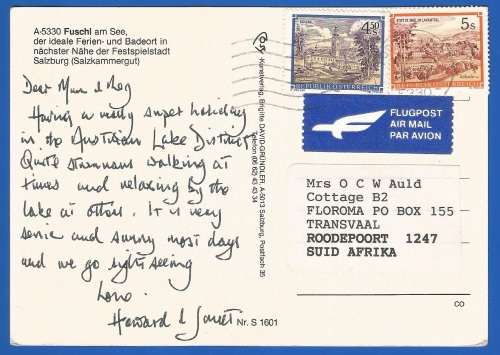 A-5330 Fuschl am See,
der ideale Ferien- und Badeort in
nächster Nähe der Festspielstadt
Salzburg (Salzkammergut)
Dear Mum & Meg
Having a really super holiday
in the Austrian Lake District.
Quite strenuous walking at
times and relaxing by the
lake at others. It is very
scenic and sunny most days
and we go sight seeing
Love
Howard & Janet
Nr. S 1601
Kunstverlag, Brigitte DAVID-GRÜNDLER, A-5013 Salzburg, Postfach 35
Telefon (06 62) 43 43 34
4.50 S
REPUBLIK ÖSTERREICH
5 S
STIFT ST. PAUL IM LAVANTTAL
REPUBLIK ÖSTERREICH
FLUGPOST
AIR MAIL
PAR AVION
Mrs O C W Auld
Cottage B2
FLOROMA PO BOX 155
TRANSVAAL
ROODEPOORT 1247
SUID AFRIKA
CO